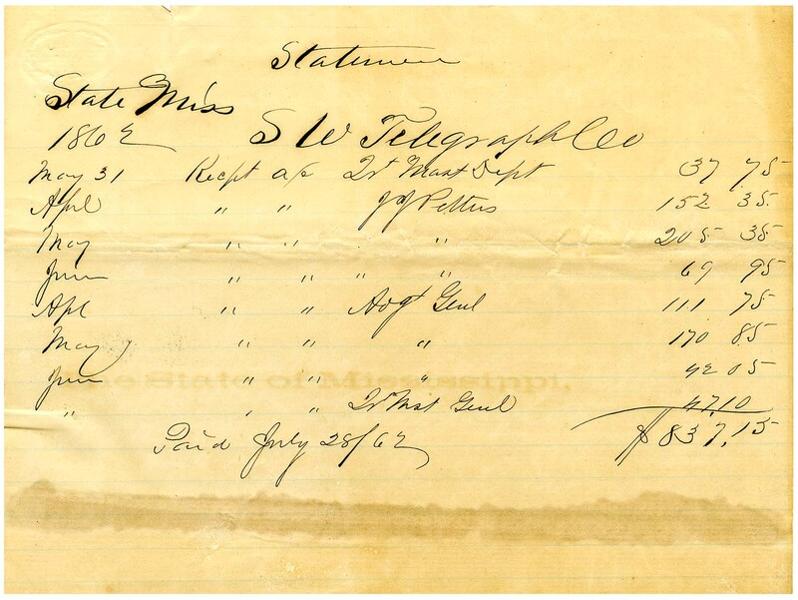 Statement
State Miss
1862 S W Telegraph Co
May 31 Recpt a/c Qr Mast Dept 37 75
Apl " " JJ Pettus 152 35
May " " " 205 35
June " " " " 69 95
Apl " " Adjt Genl 111 75
May " " " 170 85
June " " " 42 05
" " " Qr Mst Genl 47 10
Paid July 28/62 $837.15
The State of Mississippi,